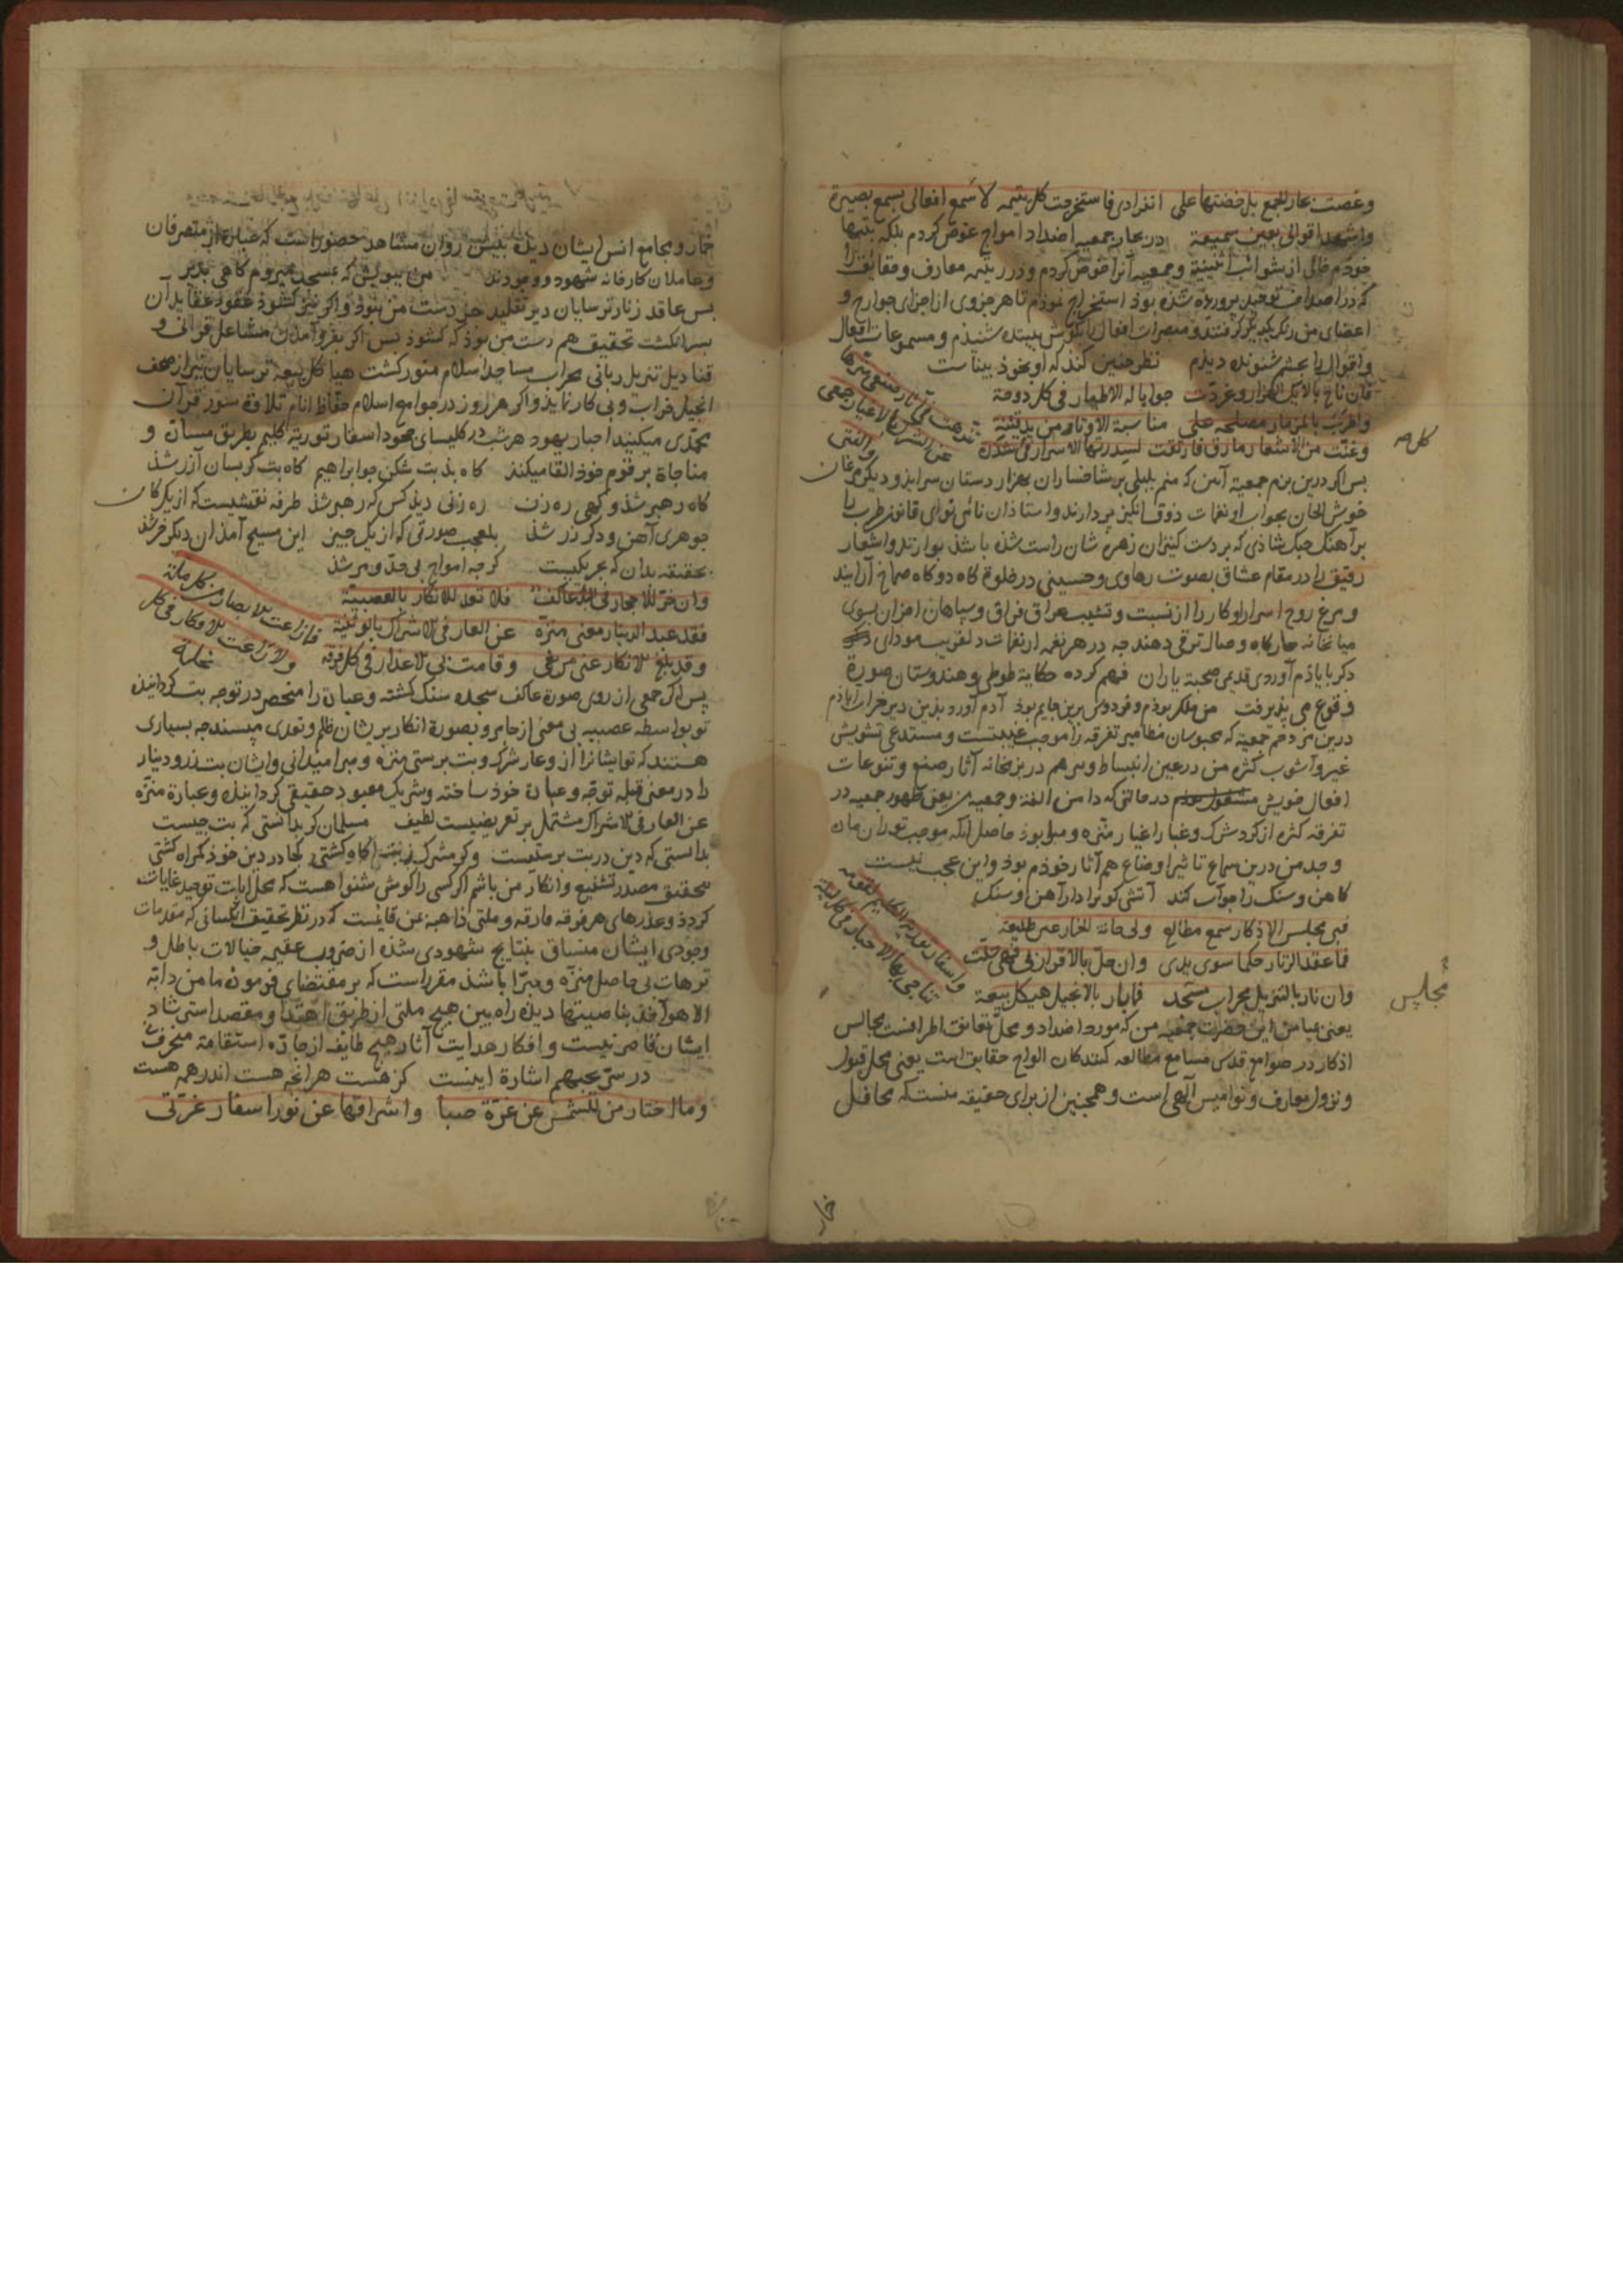 وغصت بحار الجمع بل خضتها على انفرادی فاستخرجت کل یتیمه لاسمع افعالی بسمع بصیرة
واشهد اقوالی بعین سمیعة در بحار جمعیه اضداد امواج غوض کردم بلکه بتنها
خودم خالی از شوائب اثنینیة و جمعیه آنرا خوض کردم و درر یتیمه معارف و حقایق را
که در اصداف توحید پرورده شده بوذ استخراج نموذم تا هر جزوی از اجزای جوارح و
اعضای من رنک یکدیکر کرفتند و مبصرات افعال را بکوش بیننده شنیذم و مسموعات افعال
و اقوال را بچشم شنونده دیذم نظر چنین کند که او بخوذ بیناست
فان ناح بالایک الهزار وغردت جوابا له الاطیار فی کل دوحة
واطرب بالمزمار مصلحه علی مناسبة الاوتار من ید قینة
وغنت من الاشعار ما رق فارتقت لسدرتها الاسرار فی کل شدة
تنزهت فی آثار صنعی منزها
عن الشرک بالاغیار جمعی
والفتی
کل صح
پس اکر درین بزم جمعیة آمن که منم بلبلی بر شاخساران بهزار دستان سراید و دیکر مرغان
خوش الحان بجواب او نغمات ذوق انکیز بردارند و استاذان نائی نوای قانون طرب را
بر آهنک چنک شاذی که بر دست کنیزان زهره شان راست شده باشذ بنوازند و اشعار
رقیق را در مقام عشاق بصوت رهاوی و حسینی در خلوة کاه دو کاه صماخ آرایند
و مرغ روح اسرار اوکار را از نسبت و تشبب عراق فراق و سپاهان احزان بسوی
میانخانه جارکاه وصال ترقی دهند چه در هر نغمه از نغمات دلفریب مودای
دکر بایاذم آوردی قدیمی صحبة یاران فهم کرده حکایة طوطی و هندوستان صورة
وقوع می پذیرفت من ملک بوذم و فردوس برین جایم بوذ آدم آورد بذین دیر خراب ابادم
درین بزم جمعیة که محبوسان مظامیر تفرقه را موجب غیبتست و مستدعی تشویش
غیر و آشوب کثره من در عین انبساط وسرهم در بزمخانه آثار صنع و تنوعات
افعال خویش مشغول بوذم در حالتی که دامن الفة و جمعیه من یعنی ظهور جمعیه در
تفرقه کثره از کردش رک و غبار اغیار منزه و مبرا بوذ حاصل آنکه موجب تودران مان
وجد من درین سماع تاثیر اوضاع هم آثار خوذم بوذ و این عجب نیست
کاهن و سنک را جواب کند آتشی کو برادر آهن و سنک
فبی مجلس الاذکار سمع مطالع ولی حانة الخمار عین طلیعة
فما عقد الزنار حکما سوی یدی وان حل بالاقرار بی فهی حلت
وان نار بالتنزیل محراب مسجد فما بار بالانجیل هیکل بیعة
واسفار توریه الکلیم لقومه
تناجی بها الاحبار فی کل لیلة
مجلس
یعنی بیامن این حضرت جمعیه من که مورد اضداد و محل تقانق اطرافست مجالس
اذکار در صوامع قدس مسامع مطالعه کنندکان الواح حقایق است یعنی محل قبول
و نزول معارف و نوامیس آلهی است و همچنین از برای حقیقه منست که محافل
خمار
خمار و مجامع انس ایشان دیده بیش روان مشاهد حضور است که عبارة از متصرفان
و عاملان کارخانه شهود و وجودند من بیویش که بمسجد میروم کاهی بدیر
پس عاقد زنار ترسایان دیر تقلید جز دست من نبوذ و اکر نیز کشوذ عقود عقاید آن
بسرانکشت تحقیق هم دست من بوذ که کشوذ پس اکر بفرو آمدن مشاعل قرآنی و
قنادیل تنزیل ربانی محراب مساجد اسلام منور کشت هیاکل بیعه ترسایان نیز از صحف
انجیل خراب و بی کار نماند و اکر هر روز در جوامع اسلام حفاظ انام تلاوة سور قرآن
تحدی میکنند احبار یهود هر شب در کلیسای جحود اسفار توریة کلیم بطریق مسان و
مناجاة بر قوم خوذ القا میکنند کاه بد بت شکن جو ابراهیم کاه بت کر بسان آزر شذ
کاه رهبر شذ و کهی ره زن ره زنی دیذ کس که رهبر شذ طرفه نقشیست که از یک کان
جوهری آهن و دکر زر شذ بلعجب صورتی که از یک جیز این مسیح آمذ آن دکر خر شذ
بحقیقه بدان که بحر یکیست کرچه امواج بی حد و مر شذ
وان خر للاحجار فی البد عاکف فلا تعد للانکار بالعصبیة
فقد عبد الدینار معنی منزه عن العار فی الاشراک بالوثنیة
وقد بلغ الانکار عنی من بغی وقامت بی الاعذار فی کل فرقه
فما زاغت الابصار من کل ملة
ولا زاغت الافکار فی کل
نحلة
پس اکر جمعی از روی صورة عاکف سجده سنک کشته و عبادة را منحصر در توجه بت کردانیذن
تو بواسطه عصبیه بی معنی از جا مرو و بصورة انکار بریشان ظلم و تعدی مپسند چه بسیاری
هستند که تو ایشانرا از وعار شرک و بت پرستی منزه و مبرا میدانی و ایشان بت زر و دینار
را در معنی قبله توجه و عبادة خوذ ساخته و شریک معبود حقیقی کردانیده و عبارة منزه
عن العار فی الاشراک مشتمل بر تعریضیست لطیف مسلمان کر بدانستی که بت چیست
بدانستی که دین در بت پرستیست وکر مشرک ز بت آکاه کشتی کجا در دین خوذ کمراه کشتی
بتحقیق مصدر تشنیع و انکار من باشم اکر کسی را کوش شنوا هست که محل ایات توحید غایات
کردذ و عذرهای هر فرقه فارقه و ملتی ذاهبه بمن قایمست که در نظر تحقیق انکسانی که مقدمات
وجودی ایشان منساق بنتایج شهودی شده از ضروب عقیمه خیالات باطل و
ترهات بی حاصل منزه و مبرا باشذ مقرر است که بر مقتضای فرموده ما من دابة
الا هو آخذ بناصیتها دیده راه بین هیج ملتی از طریق اهتدا و مقصد استرشاد
ایشان قاصر نیست و افکار هدایت آثار هیچ طایفه از جاده استقامة منحرف
در سر یحبهم اشارة اینست کز هست هرانچه هست اندر همه هست
وما احتار من للشمس عن غرة صبا واشراقها عن نور اسفار غرتی